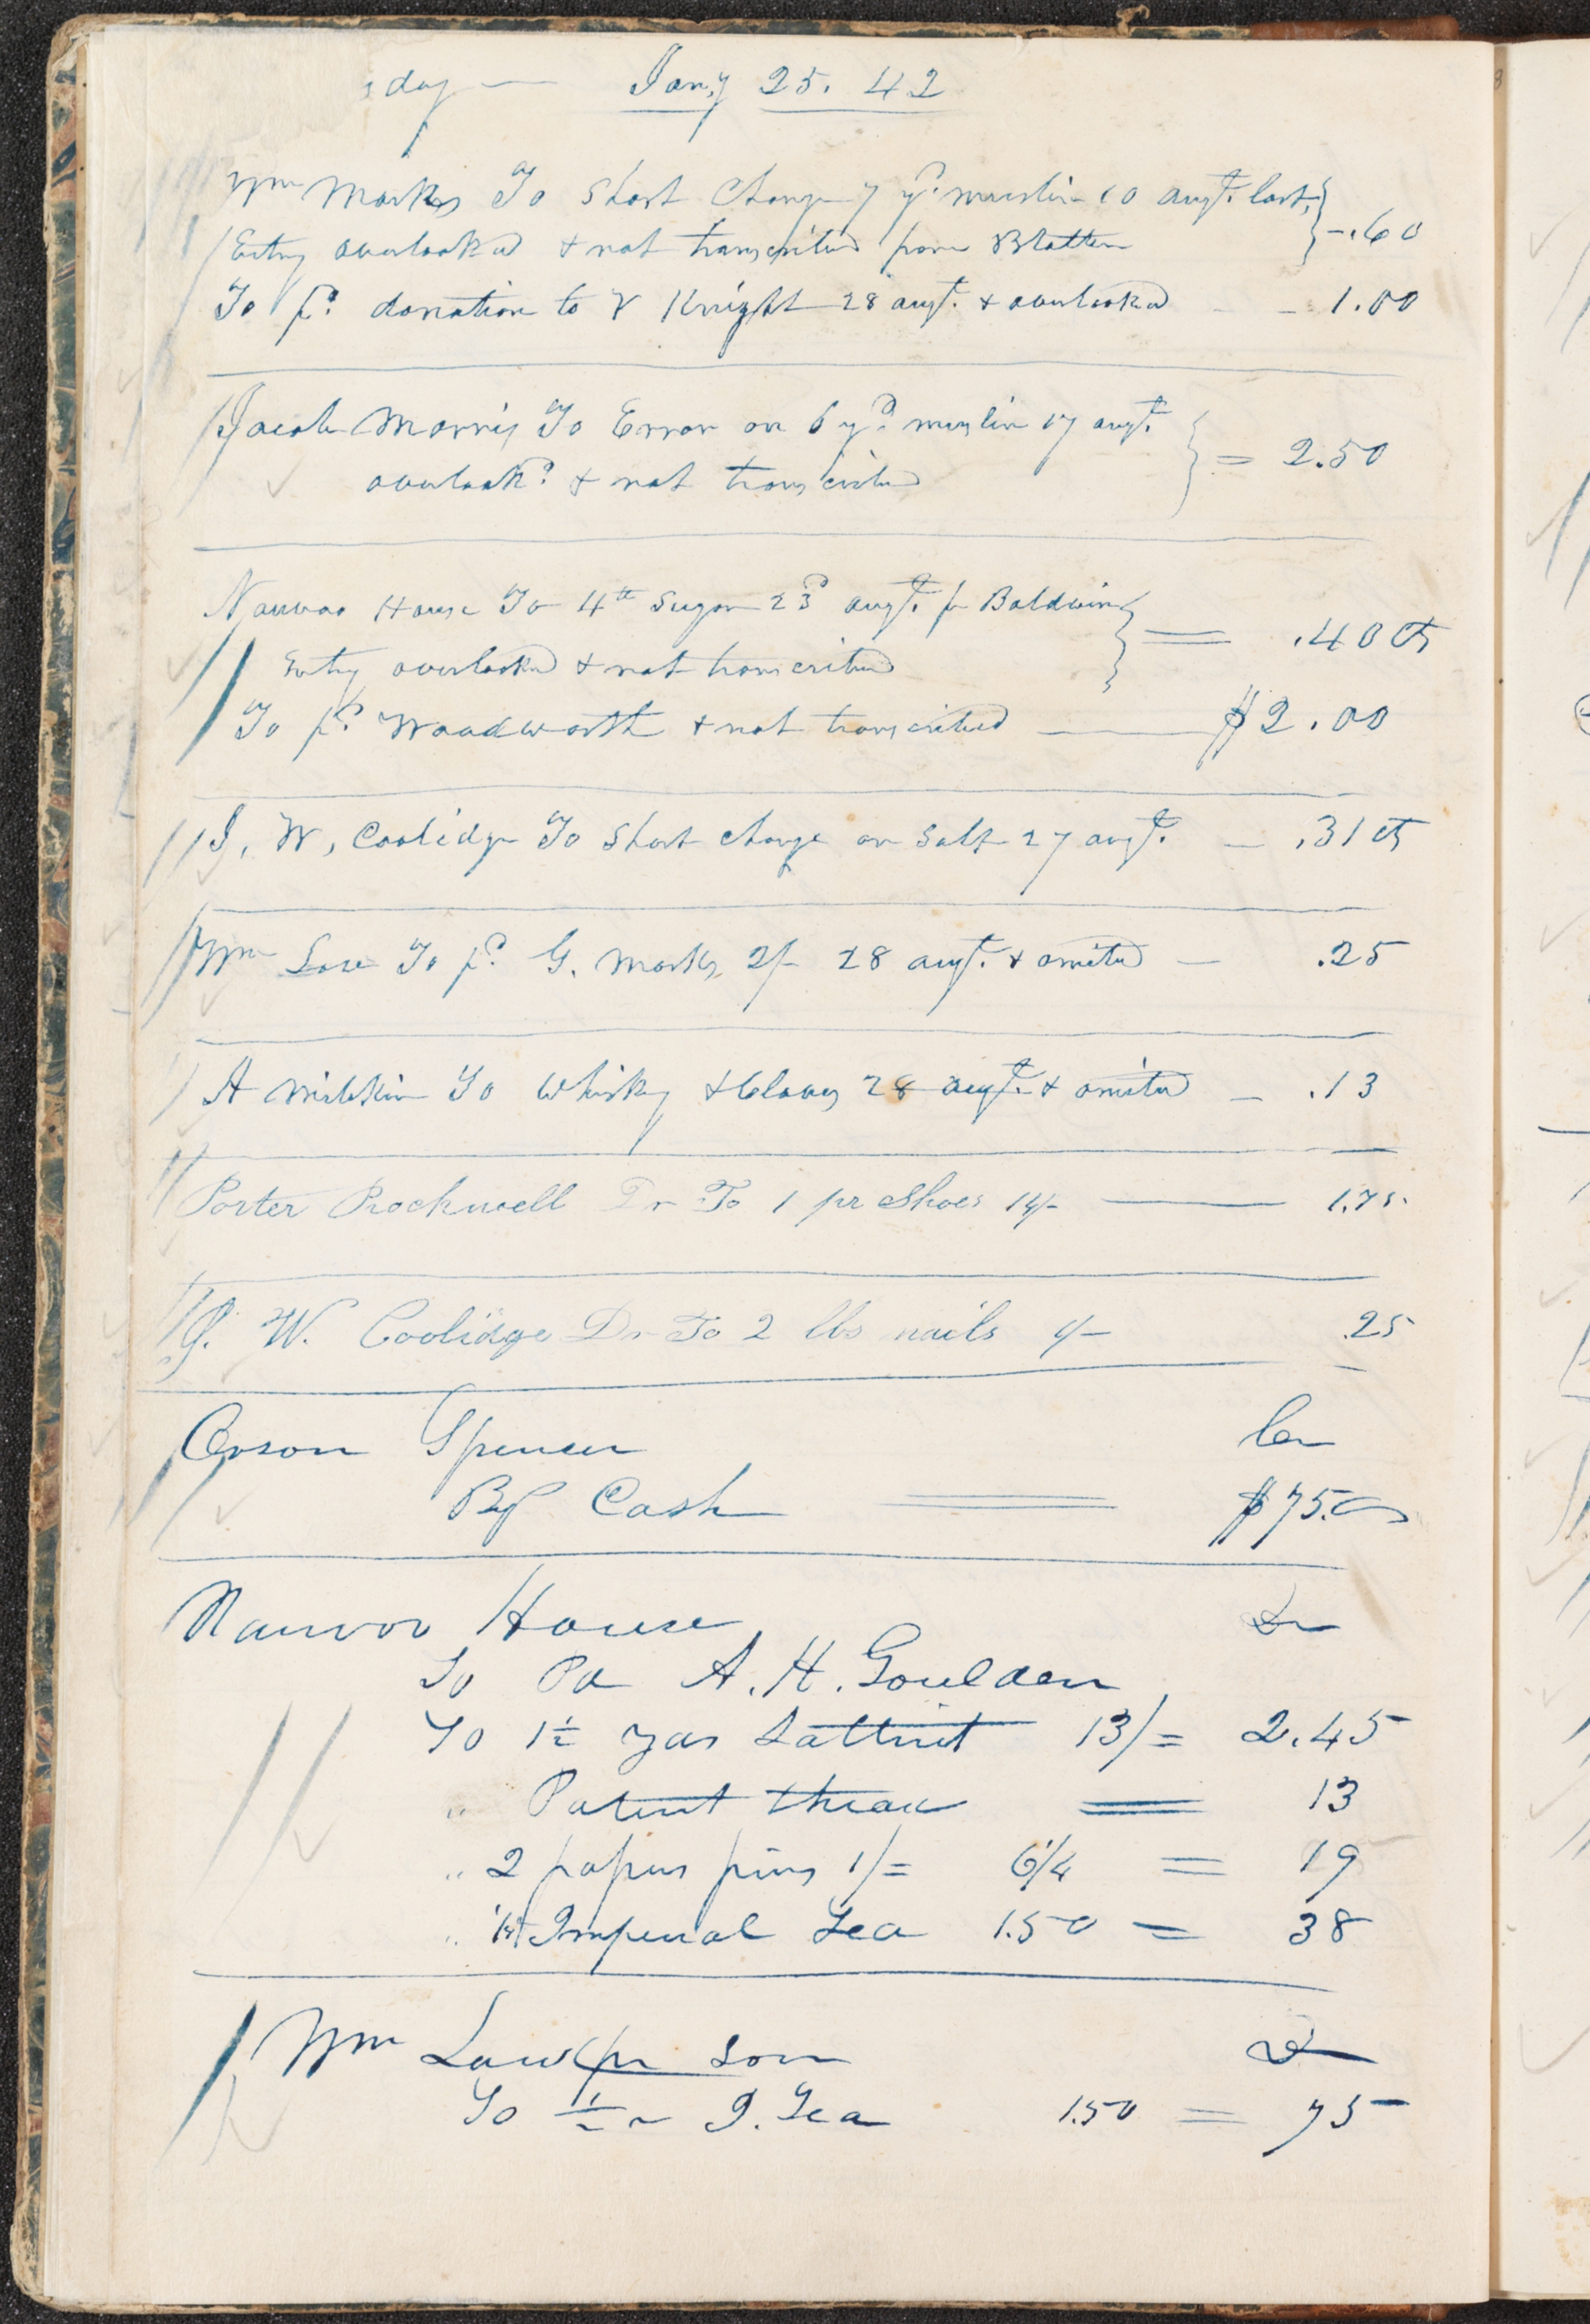 day — Jany 25. 42
Wm Marks To Short Charge 7 yd. muslin 10 augt. last,
Entry overlooked & not transcribed from Blotter } - .60
To pd. donation to V Knight 28 augt. & overlooked - - 1.00
Jacob Morris To Error on 6 yd. muslin 17 augt.
overlookd. & not transcribed } = 2.50
Nauvoo House To 4 lb Sugar 23d augt. pr Baldwin
Entry overlooked & not transcribed } = .40 cts
To pd. Woodworth & not transcribed — $2.00
J, W, Coolidge To Short charge on Salt 27 augt. — .31 cts
Wm Law To pd. G. Marks, 2/- 28 augt. & omitted — .25
A Milikin To Whisky & Cloves 28 augt. & omitted — .13
Porter Rockwell Dr To 1 pr Shoes 14/- — 1.75.
J. W. Coolidge Dr To 2 lbs nails 1/- .25
Orson Spencer Cr
By Cash = $75.00
Nauvoo House Dr
To Pd A. H. Goulden
To 1½ yds Sattinet 13/= 2.45
" Patent thread = 13
" 2 papers pins 1/= 6¼ = 19
" ¼ Imperial Tea 1.50 = 38
Wm Law pr son Dr
To ½ ~ I. Tea 1.50 = 75